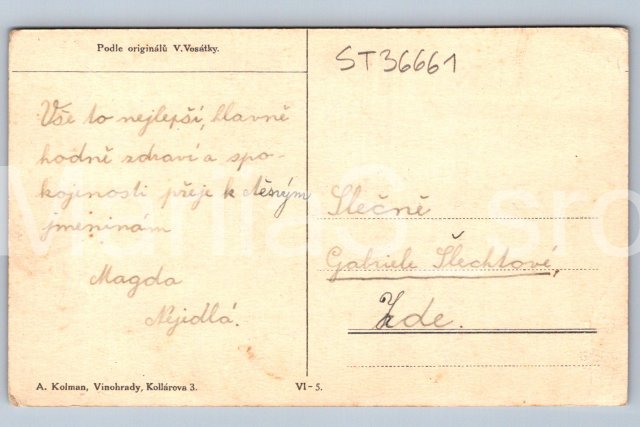 Podle originálů V. Vosátky.
ST36661
Vše to nejlepší, hlavně
hodně zdraví a spo-
kojenosti přeje k
jmeninám
Magda
Nejidlá.
Slečně
Gabriele Šlechtové,
Zde.
A. Kolman, Vinohrady, Kollárova 3.
VI-5.